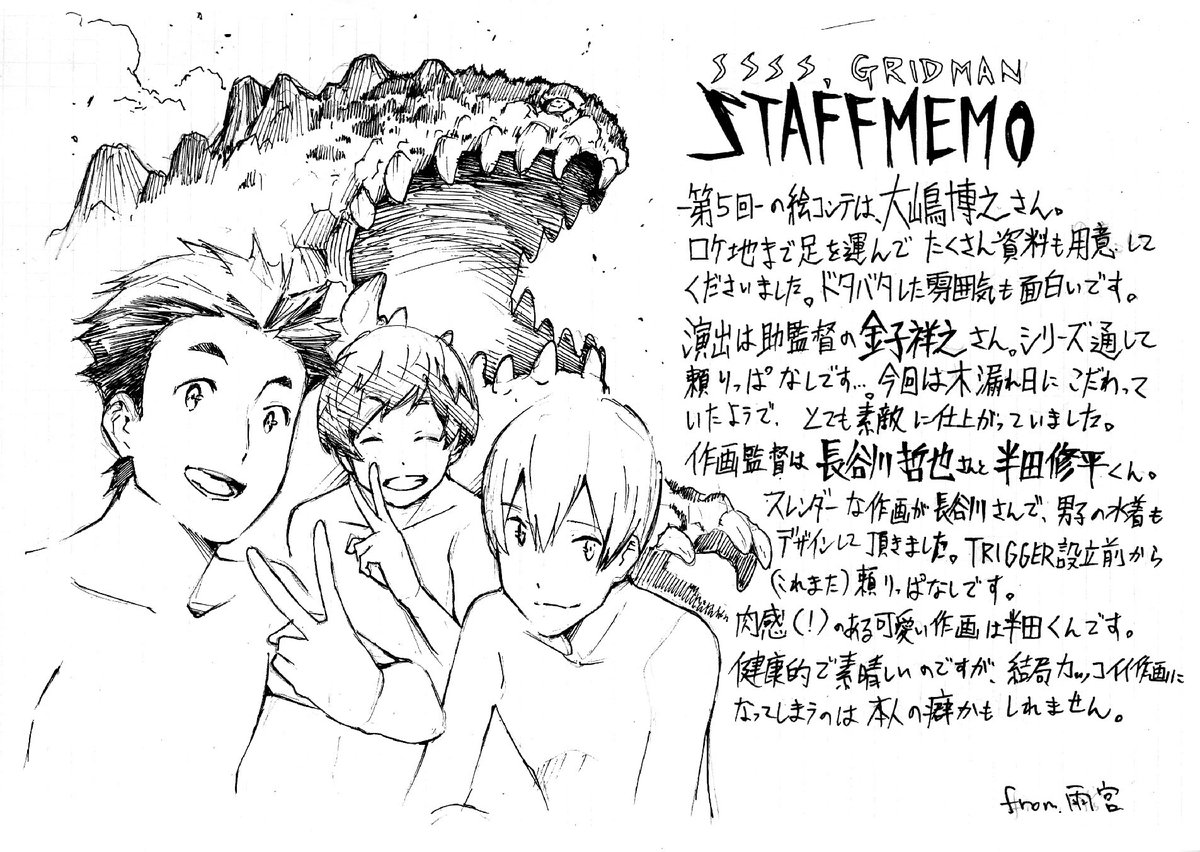 SSSS. GRIDMAN
STAFFMEMO
第5回の絵コンテは、大嶋博之さん。
ロケ地まで足を運んで たくさん資料も用意して
くださいました。ドタバタした雰囲気も面白いです。
演出は助監督の金子祥之さん。シリーズ通して
頼りっぱなしです… 今回は木漏れ日にこだわって
いたようで、とても素敵に仕上がっていました。
作画監督は長谷川哲也さんと半田修平くん。
スレンダーな作画が長谷川さんで、男子の水着も
デザインして頂きました。TRIGGER設立前から
(これまた)頼りっぱなしです。
肉感(!)のある可愛い作画は半田くんです。
健康的で素晴しいのですが、結局カッコイイ作画に
なってしまうのは本人の癖かもしれません。
from.雨宮